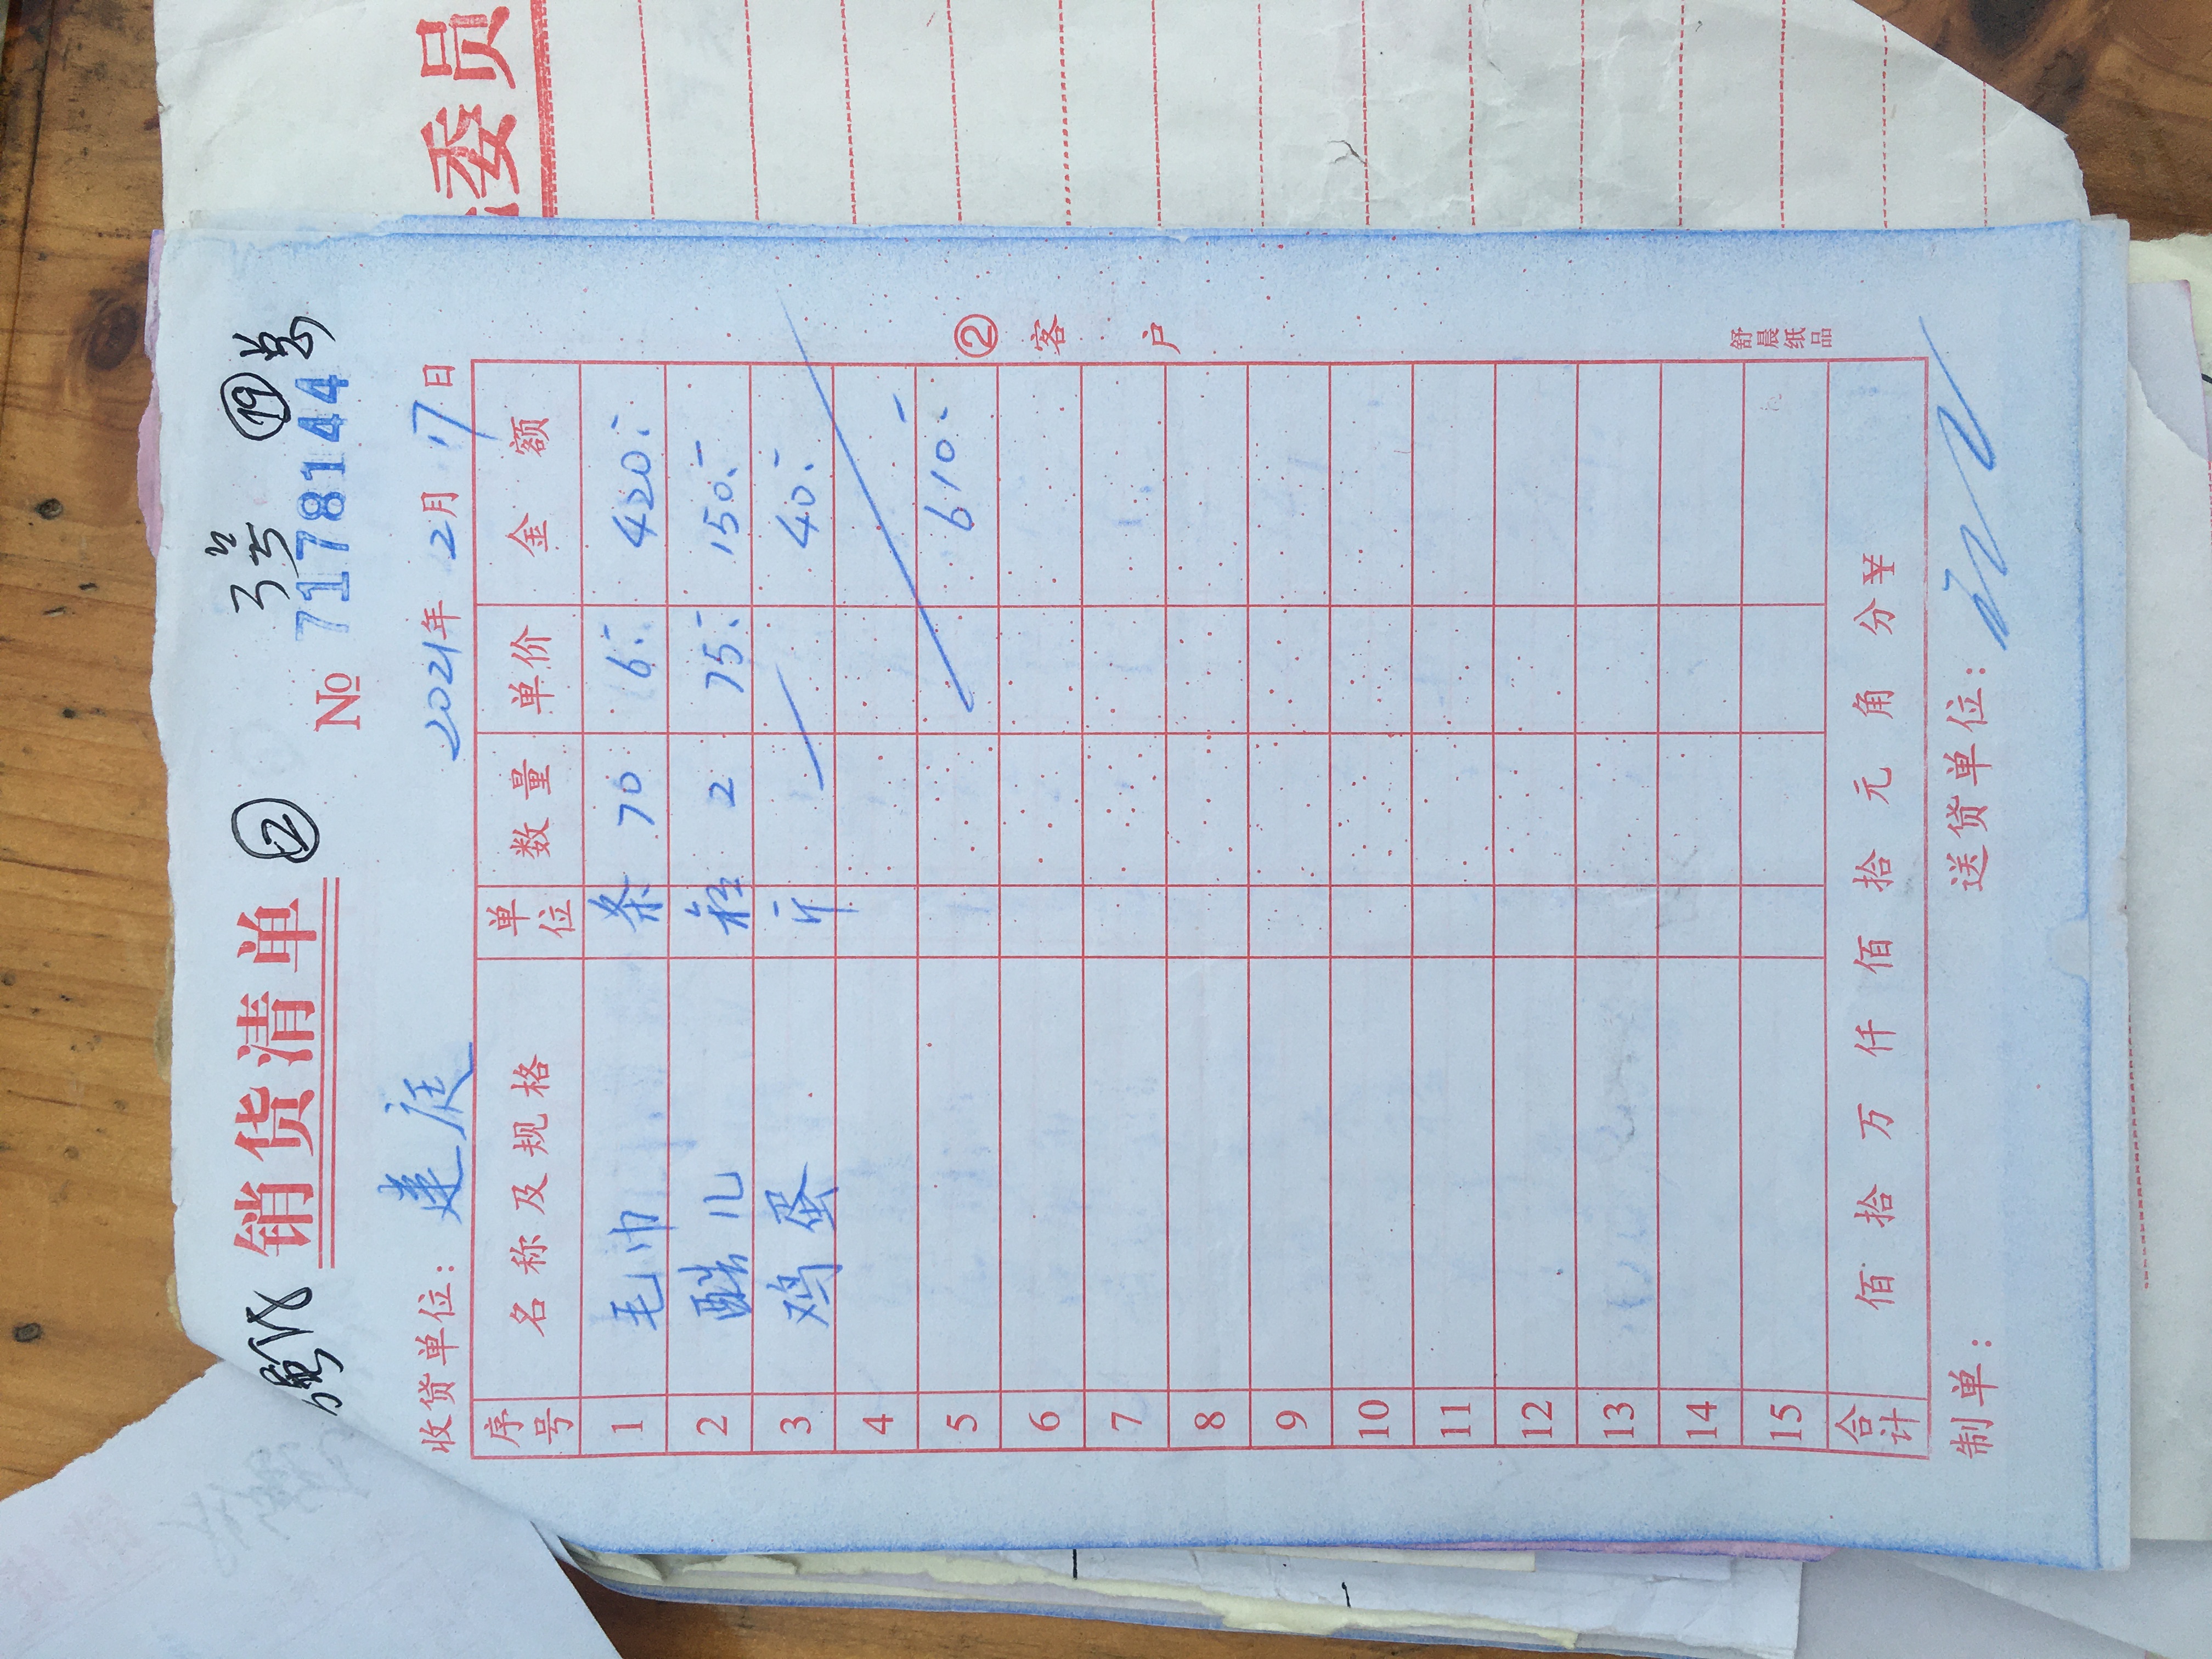 销货清单 ② 3号 ⑲ 总
№ 7178144
收贷单位： 建庭 2021年 2月 17日
序号 名称及规格 单位 数量 单价 金额
1 毛巾 条 70 6.- 420.-
2 酷儿 2 75.- 150.-
3 鸡蛋 斤 40.-
4
5 610.-
6
7
8
9
10
11
12
13
14
15
合计 佰 拾 万 仟 佰 拾 元 角 分 ¥
制单： 送贷单位：
②客户
舒晨纸品
委员